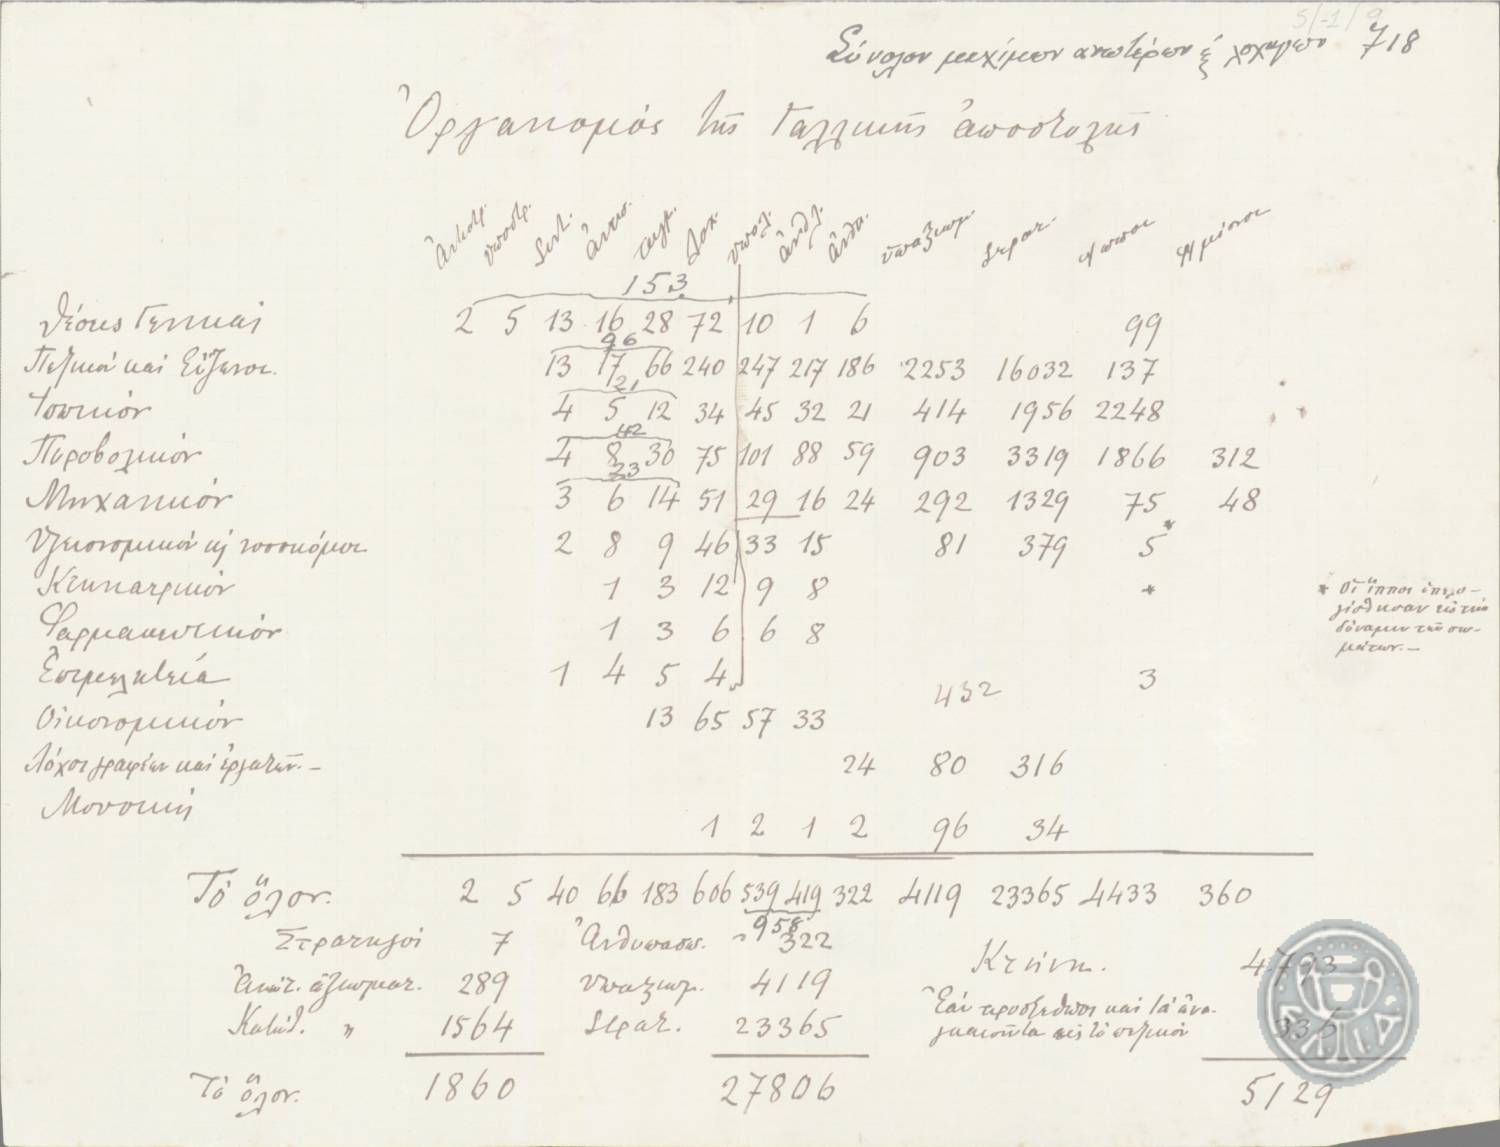 5/-1/9
Σύνολον μαχίμων ανωτέρων ἐξ λοχαγῶν 718
Ὀργανισμός τῆς Γαλλικῆς ἀποστολῆς
ἀντιστρ. υποστρ. Συντ. ἀντισ. ταγμ. λοχ. υπολ. ἀνθλ. ἀνθσ. ὑπαξιωμ. Στρατ. ἵπποι ἡμίονοι
153
Θέσεις Γενικαί 2 5 13 16 28 72 10 1 6 99
96
Πεζικόν καί Εὔζωνοι. 13 17 66 240 247 217 186 2253 16032 137
21
Ἱππικόν 4 5 12 34 45 32 21 414 1956 2248
42
Πυροβολικόν 4 8 30 75 101 88 59 903 3319 1866 312
23
Μηχανικόν 3 6 14 51 29 16 24 292 1329 75 48
Ὑγειονομικόν κ νοσοκόμοι 2 8 9 46 33 15 81 379 5*
Κτηνιατρικόν 1 3 12 9 8 *
Φαρμακευτικόν 1 3 6 6 8
Ἐπιμελητεία 1 4 5 4 3
432
Οἰκονομικόν 13 65 57 33
Λόχοι γραφέων καί ἐργατῶν.- 24 80 316
Μουσική
1 2 1 2 96 34
* Οἱ ἵπποι ὑπελο-
γίσθησαν εἰς τήν
δύναμιν τῶν σω-
μάτων.-
Τό ὅλον. 2 5 40 66 183 606 539 419 322 4119 23365 4433 360
958
Στρατηγοί 7 Ἀνθυπασπ. 322 Κτήνη. 4793
Ἀνώτ. ἀξιωματ. 289 Ὑπαξιωμ. 4119 Ἐάν προστεθῶσι καί τά ἀνα-
Κατώτ. " 1564 Στρατ. 23365 γκαιοῦντα εἰς τό πεζικόν 336
Τό ὅλον. 1860 27806 5129
ΕΛΙΑ